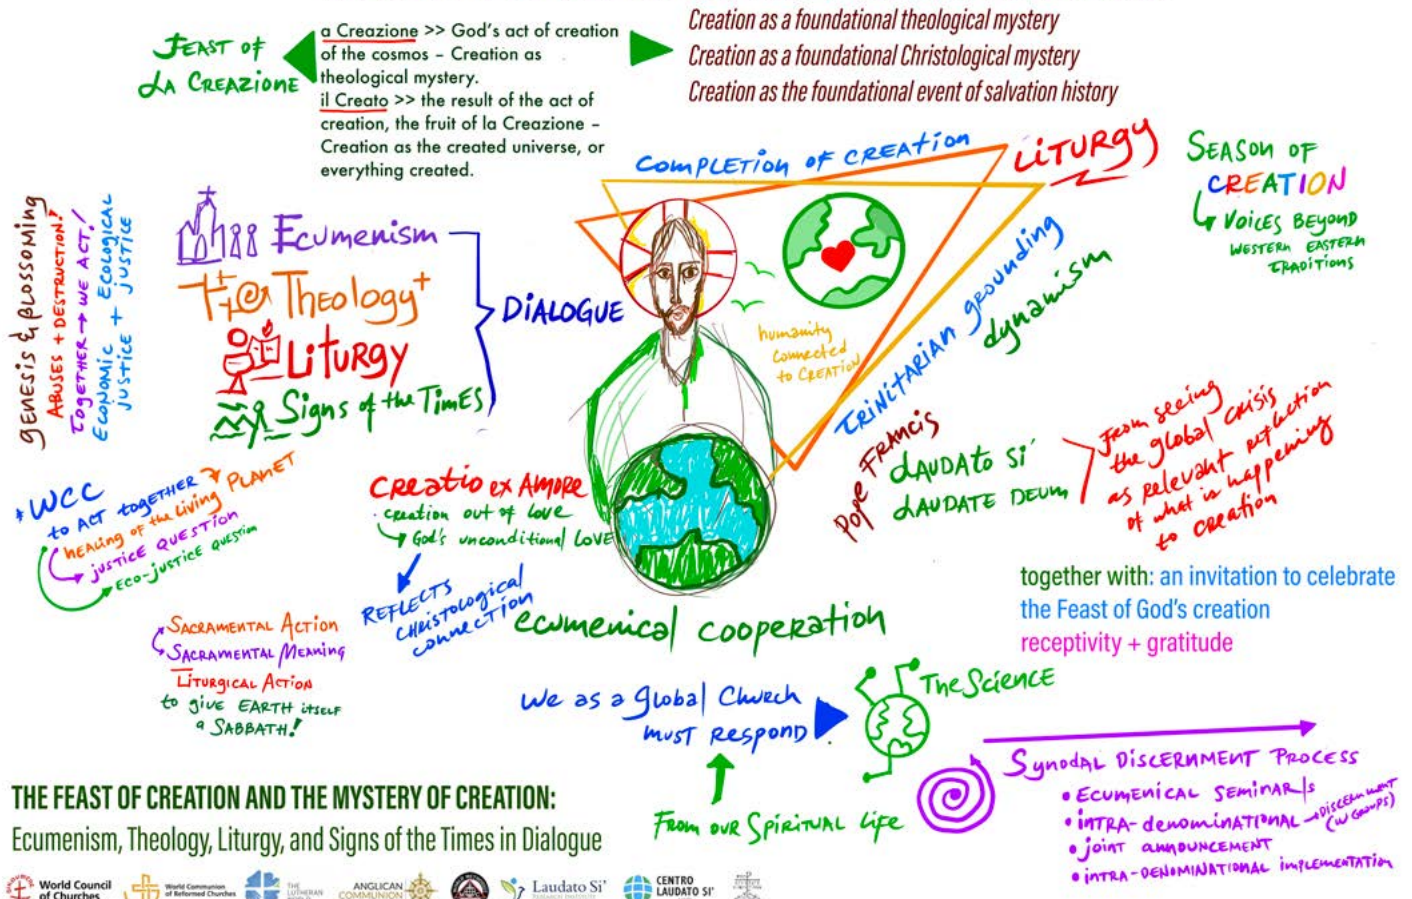 FEAST OF
LA CREAZIONE
a Creazione >> God's act of creation
of the cosmos – Creation as
theological mystery.
il Creato >> the result of the act of
creation, the fruit of la Creazione –
Creation as the created universe, or
everything created.
Creation as a foundational theological mystery
Creation as a foundational Christological mystery
Creation as the foundational event of salvation history
COMPLETION OF CREATION
LITURGY
SEASON OF
CREATION
VOICES BEYOND
WESTERN EASTERN
TRADITIONS
GENESIS & BLOSSOMING
ABUSES + DESTRUCTION!
TOGETHER → WE ACT!
ECONOMIC + ECOLOGICAL
JUSTICE + JUSTICE
Ecumenism
Theology+
LITURGY
Signs of the TIMES
DIALOGUE
humanity
connected
to CREATION
TRINITARIAN grounding
dynamism
Pope FRANCIS
LAUDATO SI'
LAUDATE DEUM
From seeing
the global CRISIS
as relevant reflection
of what is happening
to creation
* WCC
to ACT together
HEALING of the Living PLANET
JUSTICE QUESTION
ECO-JUSTICE QUESTION
CREATIO ex AMORE
creation out of love
God's unconditional LOVE
REFLECTS
CHRISTological
connection
SACRAMENTAL ACTION
SACRAMENTAL MEANING
LITURGICAL ACTION
to give EARTH itself
a SABBATH!
ecumenical cooperation
together with: an invitation to celebrate
the Feast of God's creation
receptivity + gratitude
We as a global Church
must respond
The SCIENCE
From our SPIRITUAL Life
SYNODAL DISCERNMENT PROCESS
• ECUMENICAL SEMINAR/s
• INTRA-denominational → DISCERNMENT
(W GROUPS)
• JOINT ANNOUNCEMENT
• INTRA-DENOMINATIONAL IMPLEMENTATION
THE FEAST OF CREATION AND THE MYSTERY OF CREATION:
Ecumenism, Theology, Liturgy, and Signs of the Times in Dialogue
World Council
of Churches
World Communion
of Reformed Churches
THE
LUTHERAN
ANGLICAN
COMMUNION
Laudato Si'
RESEARCH INSTITUTE
CENTRO
LAUDATO SI'